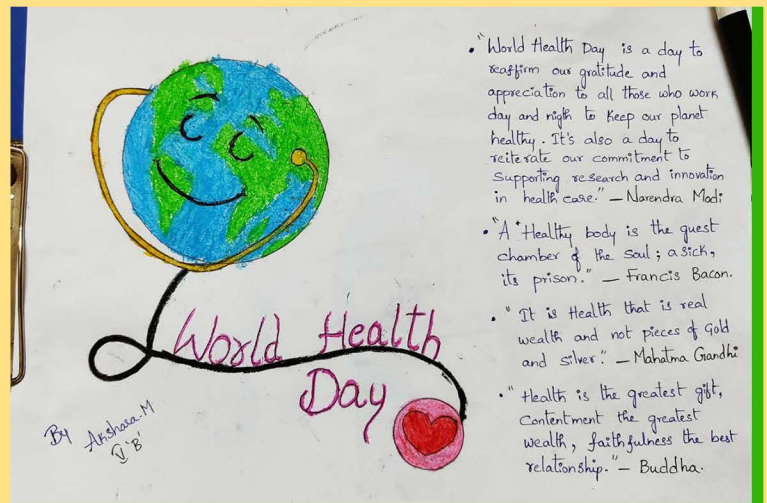 World Health
Day
By Akshara.M
V 'B'
• "World Health Day is a day to
reaffirm our gratitude and
appreciation to all those who work
day and nigth to keep our planet
healthy. It's also a day to
reiterate our commitment to
Supporting research and innovation
in health care." – Narendra Modi
• "A Healthy body is the guest
chamber of the soul; a sick,
its prison." – Francis Bacon.
• "It is Health that is real
wealth and not pieces of Gold
and silver." – Mahatma Gandhi
• "Health is the greatest gift,
contentment the greatest
wealth, faithfulness the best
relationship." – Buddha.